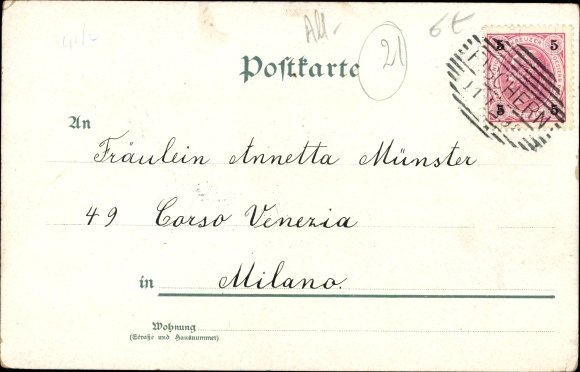 All-
6 €
21
Postkarte
5 KREUZER 5
5 5
An
Fräulein Annetta Münster
49 Corso Venezia
in Milano.
Wohnung
(Straße und Hausnummer)